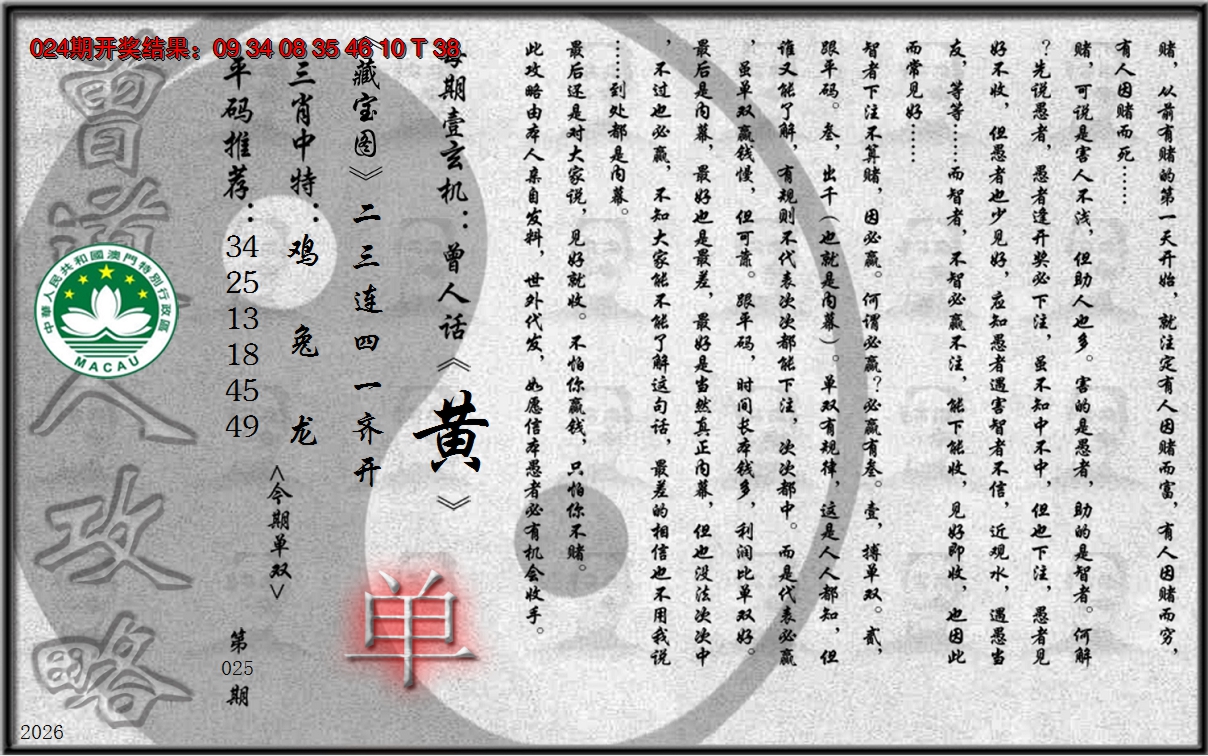 024期开奖结果：09 34 08 35 46 10 T 38
赌，从前有赌的第一天开始，就注定有人因赌而富，有人因赌而穷，
有人因赌而死……
赌，可说是害人不浅，但助人也多。害的是愚者，助的是智者。何解
？先说愚者，愚者逢开奖必下注，虽不知中不中，但也下注，愚者见
好不收，但愚者也少见好，应知愚者遇害智者不信，近观水，遇愚当
友，等等……而智者，不智必赢不注，能下能收，见好即收，也因此
而常见好……
智者下注不算赌，因必赢。何谓必赢？必赢有叁。壹，搏单双。贰，
跟平码。叁，出千（也就是内幕）。单双有规律，这是人人都知，但
谁又能了解，有规则不代表次次都能下注，次次都中。而是代表必赢
，虽单双赢钱慢，但可靠。跟平码，时间长本钱多，利润比单双好。
最后是内幕，最好也是最差，最好是当然真正内幕，但也没法次次中
，不过也必赢，不知大家能不能了解这句话，最差的相信也不用我说
……到处都是内幕。
最后还是对大家说，见好就收。不怕你赢钱，只怕你不赌。
此攻略由本人亲自发料，世外代发，如愿信本愚者必有机会收手。
每期壹玄机：曾人话《黄》
《藏宝图》二三连四一齐开
三肖中特：鸡 兔 龙
平码推荐：34 25 13 18 45 49
<今期单双>
单
第025期
曾道人攻略
中華人民共和國澳門特別行政區
MACAU
2026